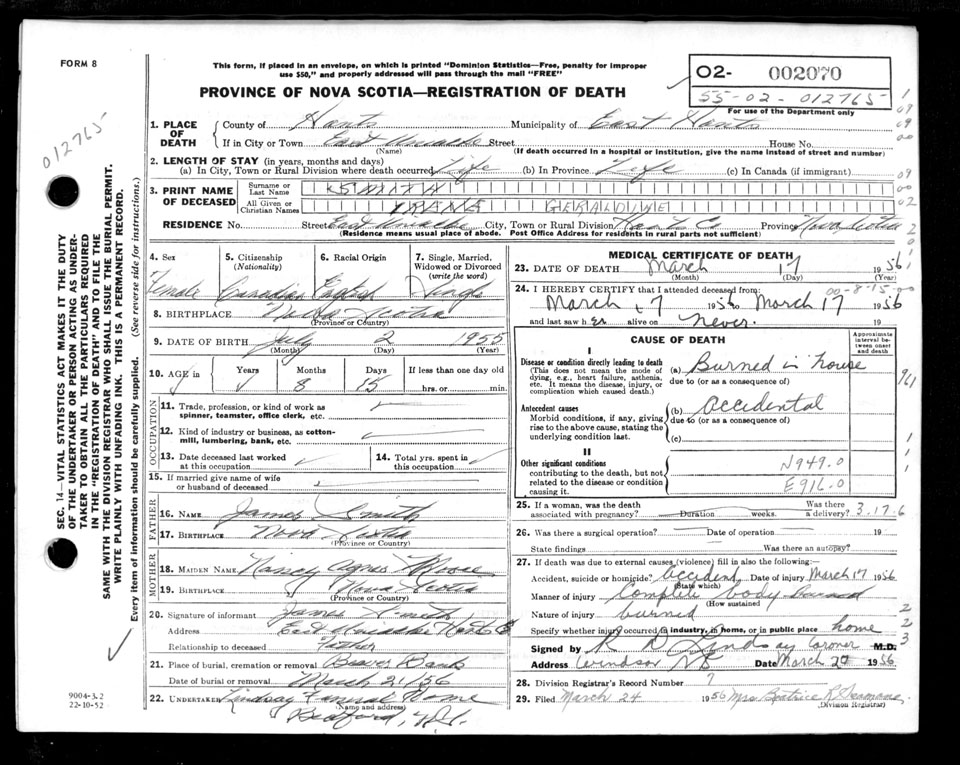 FORM 8
This form, if placed in an envelope, on which is printed "Dominion Statistics—Free, penalty for improper
use $50," and properly addressed will pass through the mail "FREE"
O2- 002070
55-02-012765
For use of the Department only
PROVINCE OF NOVA SCOTIA—REGISTRATION OF DEATH
012765
SEC. 14—VITAL STATISTICS ACT MAKES IT THE DUTY
OF THE UNDERTAKER OR PERSON ACTING AS UNDER-
TAKER TO OBTAIN ALL THE PARTICULARS REQUIRED
IN THE "REGISTRATION OF DEATH" AND TO FILE THE
SAME WITH THE DIVISION REGISTRAR WHO SHALL ISSUE THE BURIAL PERMIT.
WRITE PLAINLY WITH UNFADING INK. THIS IS A PERMANENT RECORD.
Every item of information should be carefully supplied. (See reverse side for instructions.)
1. PLACE OF DEATH County of Hants Municipality of East Hants
If in City or Town East Uniacke Street House No.
(Name) (If death occurred in a hospital or institution, give the name instead of street and number)
2. LENGTH OF STAY (in years, months and days)
(a) In City, Town or Rural Division where death occurred Life (b) In Province Life (c) In Canada (if immigrant)
3. PRINT NAME OF DECEASED Surname or Last Name SMITH
All Given or Christian Names GERALDINE
RESIDENCE No. Street East Uniacke City, Town or Rural Division Hants Co Province Nova Scotia
(Residence means usual place of abode. Post Office Address for residents in rural parts not sufficient)
4. Sex 5. Citizenship (Nationality) 6. Racial Origin 7. Single, Married, Widowed or Divorced (write the word)
Female Canadian English Single
8. BIRTHPLACE Nova Scotia
(Province or Country)
9. DATE OF BIRTH July 2 1955
(Month) (Day) (Year)
10. AGE in Years Months Days If less than one day old
8 15 hrs. or min.
OCCUPATION
11. Trade, profession, or kind of work as spinner, teamster, office clerk, etc.
12. Kind of industry or business, as cotton-mill, lumbering, bank, etc.
13. Date deceased last worked at this occupation 14. Total yrs. spent in this occupation
15. If married give name of wife or husband of deceased
FATHER
16. NAME James Smith
17. BIRTHPLACE Nova Scotia
(Province or Country)
MOTHER
18. MAIDEN NAME Nancy Agnes Moore
19. BIRTHPLACE Nova Scotia
(Province or Country)
20. Signature of informant James Smith
Address East Uniacke Hants Co
Relationship to deceased Father
21. Place of burial, cremation or removal Beaver Bank
Date of burial or removal March 21/56
22. UNDERTAKER Lindsay Funeral Home
(Name and address)
Bedford, N.S.
9004-3.2
22-10-52
MEDICAL CERTIFICATE OF DEATH
23. DATE OF DEATH March 17 1956
(Month) (Day) (Year)
24. I HEREBY CERTIFY that I attended deceased from: 00-8-15-00
March 17 1956 to March 17 1956
and last saw her alive on never 19
CAUSE OF DEATH
Approximate interval between onset and death
I
Disease or condition directly leading to death
(This does not mean the mode of dying, e.g., heart failure, asthenia, etc. It means the disease, injury, or complication which caused death.)
(a) Burned in house
due to (or as a consequence of)
Antecedent causes
Morbid conditions, if any, giving rise to the above cause, stating the underlying condition last.
(b) Accidental
due to (or as a consequence of)
(c)
II
Other significant conditions
contributing to the death, but not related to the disease or condition causing it.
N949.0
E916.0
961
25. If a woman, was the death associated with pregnancy? Duration weeks. Was there a delivery? 3-17-6
26. Was there a surgical operation? Date of operation 19
State findings Was there an autopsy?
27. If death was due to external causes (violence) fill in also the following:
Accident, suicide or homicide? accident Date of injury March 17 1956
(State which)
Manner of injury Complete body burned
(How sustained
Nature of injury burned
Specify whether injury occurred in industry, in home, or in public place home
Signed by R R Lindsay Coroner M.D.
Address Windsor NS Date March 20 1956
28. Division Registrar's Record Number 7
29. Filed March 24 1956 Mrs Beatrice R. Seamans
(Division Registrar)